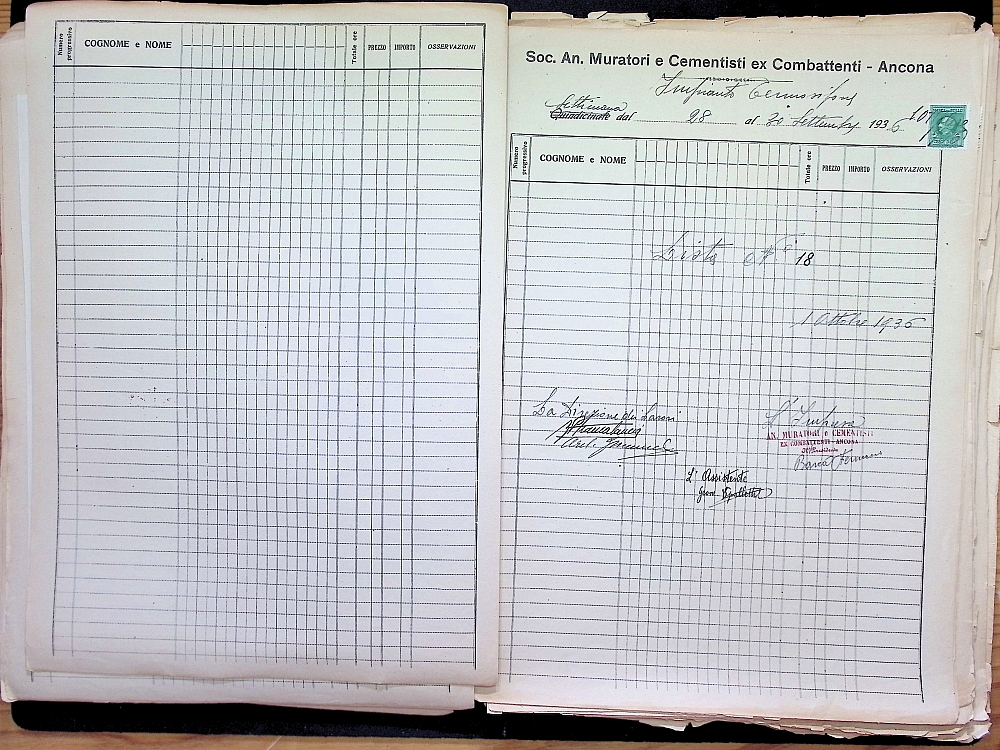 Numero progressivo
COGNOME e NOME
Totale ore
PREZZO
IMPORTO
OSSERVAZIONI
Soc. An. Muratori e Cementisti ex Combattenti - Ancona
Impianto Termosifoni
Settimana
Quindicinale dal 28 al 30 Settembre 1936
Numero progressivo
COGNOME e NOME
Totale ore
PREZZO
IMPORTO
OSSERVAZIONI
Lista N° 18
1 Ottobre 1936
La Direzione dei Lavori
L'Impresa
AN. MURATORI e CEMENTISTI
EX COMBATTENTI - ANCONA
L'Assistente